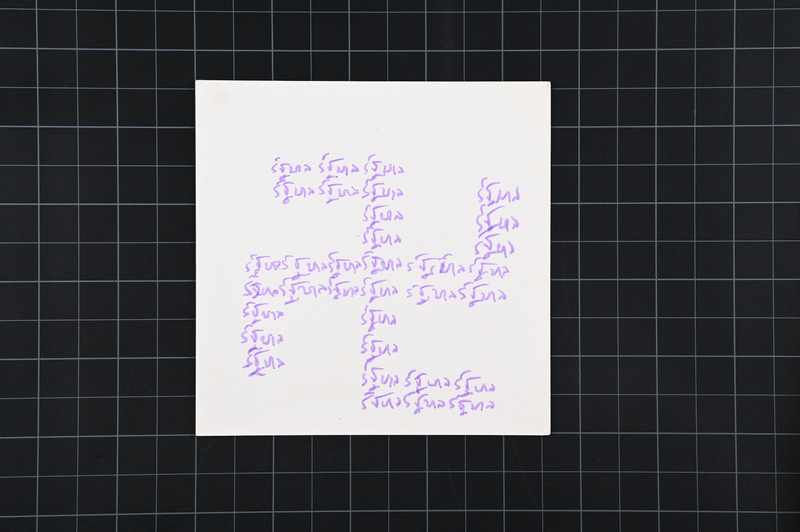 รัฐบาล รัฐบาล รัฐบาล
รัฐบาล รัฐบาล รัฐบาล รัฐบาล
รัฐบาล รัฐบาล
รัฐบาล รัฐบาล
รัฐบาล รัฐบาล รัฐบาล รัฐบาล รัฐบาล รัฐบาล
รัฐบาล รัฐบาล รัฐบาล รัฐบาล รัฐบาล รัฐบาล
รัฐบาล รัฐบาล
รัฐบาล รัฐบาล
รัฐบาล
รัฐบาล รัฐบาล รัฐบาล
รัฐบาล รัฐบาล รัฐบาล